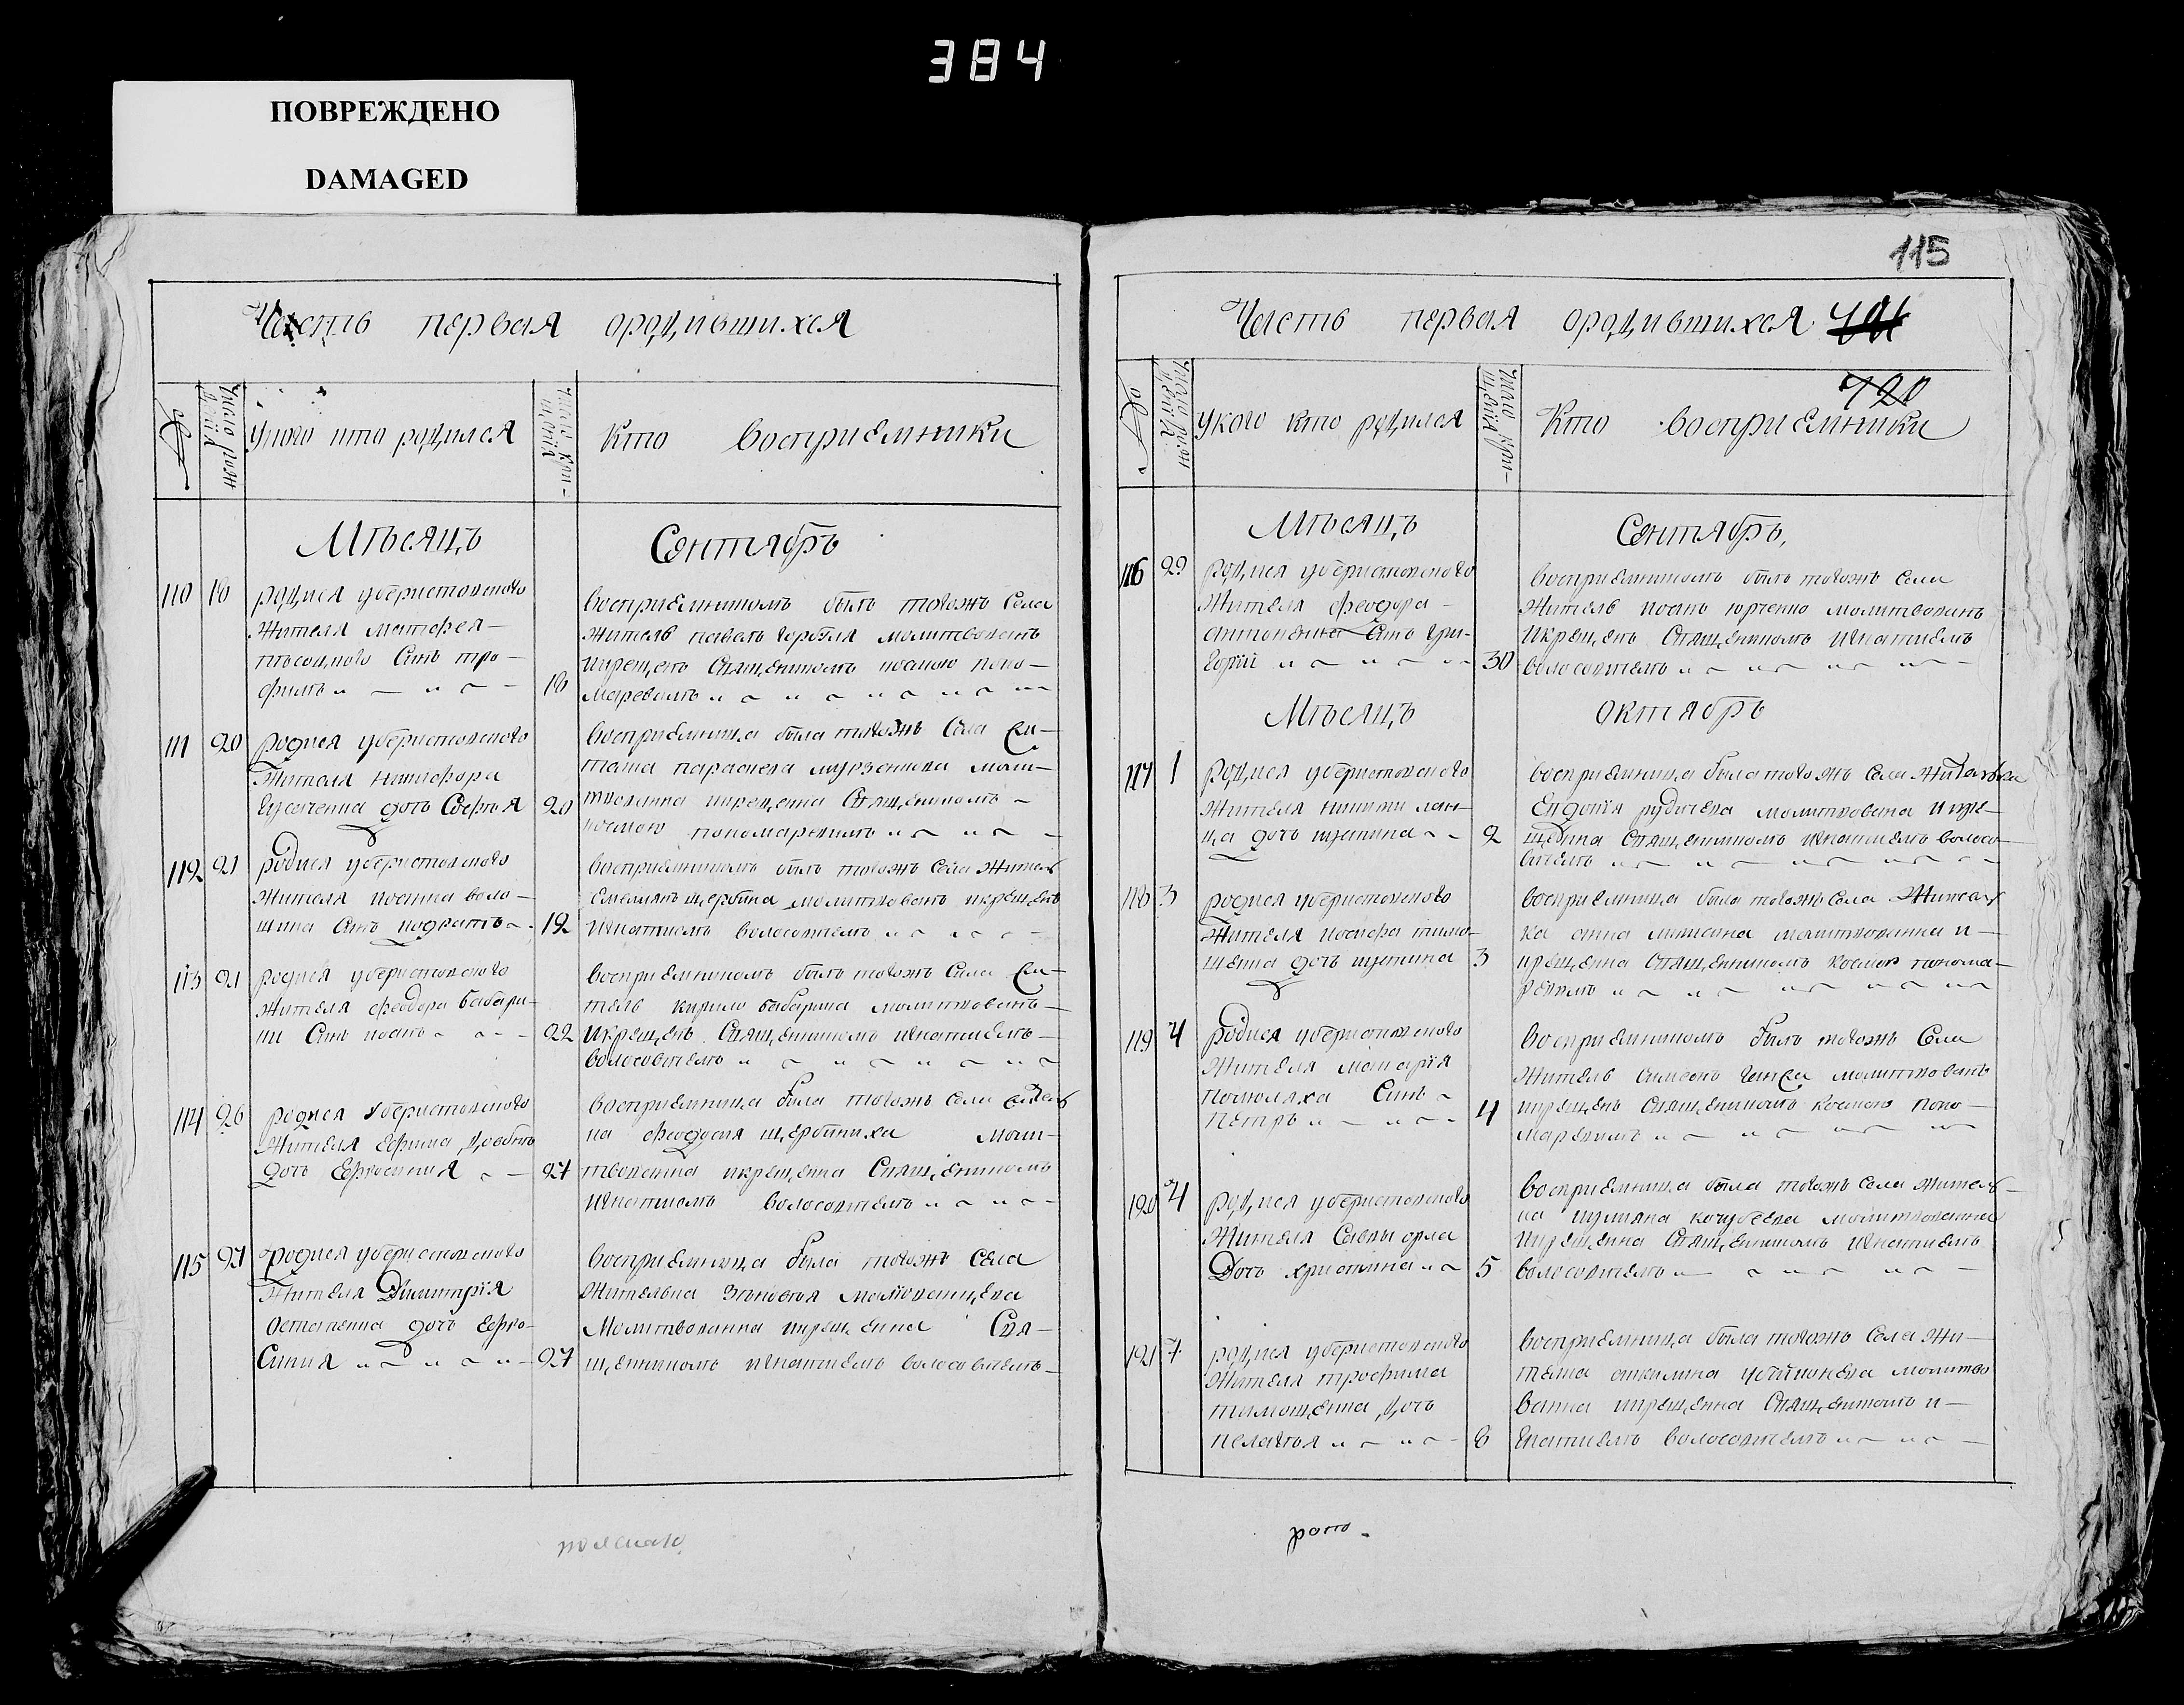 384
ПОВРЕЖДЕНО
DAMAGED
Часть первая ородившихся
Число рождения
Укого кто родился
Число крещения
Кто восприемники
Мѣсяцъ Сентябрь
110 18 родился уберистовского
Жителя матфея —
Синъ тро —
фимъ 18
восприемникомъ былъ тогожъ села
Житель павелъ горобля молитвованъ
икрещенъ Священикомъ космою поно —
маревимъ
111 20 родися уберистовского
Жителя никифора
дочь Софѣя 20
восприемница была тогожъ села жи —
телка параскева молит —
крещенна Священикомъ
космою пономаревимъ
112 21 родися уберистовского
Жителя воло —
шина Синъ кодратъ 12
восприемникомъ былъ тогожъ села Житель
Емелянъ щербина молитвованъ икрещенъ
Игнатиемъ волосовичемъ
113 21 родися уберистовского
Жителя феодора бабари —
ки Синъ иоанъ 22
восприемникомъ былъ тогожъ села жи —
тель кирило бабарика молитвованъ —
икрещенъ Священикомъ игнатиемъ —
волосовичемъ
114 26 родися уберистовского
Жителя Ефима
Дочь Ефросиния 27
восприемница была тогожъ села житель
ка феодосия щербиниха моли —
твованна икрещенна Священикомъ
Игнатиемъ волосовичемъ
115 27 родися уберистовского
Жителя Димитрия
остапенка дочь Ефро —
Синия 27
восприемница была тогожъ села
Жителька Зиновия
Молитвованна икрещенна Свя —
щенникомъ игнатиемъ волосовичемъ —
115
Часть первая ородившихся
720
Число рождения
Укого кто родился
Число крещения
Кто восприемники
Мѣсяцъ Сентябрь,
116 29 родися уберистовского
Жителя феодора —
антоненка Синъ гри —
горий 30
восприемникомъ былъ тогожъ села
Житель иоанъ юрченко молитвованъ
Икрещенъ Священикомъ Игнатиемъ
волосовичемъ
Мѣсяцъ октябрь
117 1 родися уберистовского
Жителя
дочь иустина 2
восприемница была тогожъ села жителька
Евдокия рудичева молитвована икре —
щенна Священикомъ игнатиемъ волосо —
вичемъ
118 3 родися уберистовского
Жителя иосифа тимо —
шенка дочь иустина 3
восприемница была тогожъ села Житель
ка анна молитвованна и —
крещенна Священикомъ космою понома —
ревимъ
119 4 родися уберистовского
Жителя макария
Синъ
Петръ 4
восприемникомъ былъ тогожъ села
Житель симеонъ молитвованъ
икрещенъ Священикомъ космою поно —
маревимъ
120 4 родися уберистовского
Жителя Савы орла
Дочь христина 5
восприемница была тогожъ села житель —
ка иулияна кочубеева молитвованна
икрещенна Священикомъ игнатиемъ
волосовичемъ
121 7 родися уберистовского
Жителя трофима
тимошенка дочь
пелагѣя 8
восприемница была тогожъ села жи —
телка акилина молитво
ванна икрещенна Священикомъ и —
гнатиемъ волосовичемъ